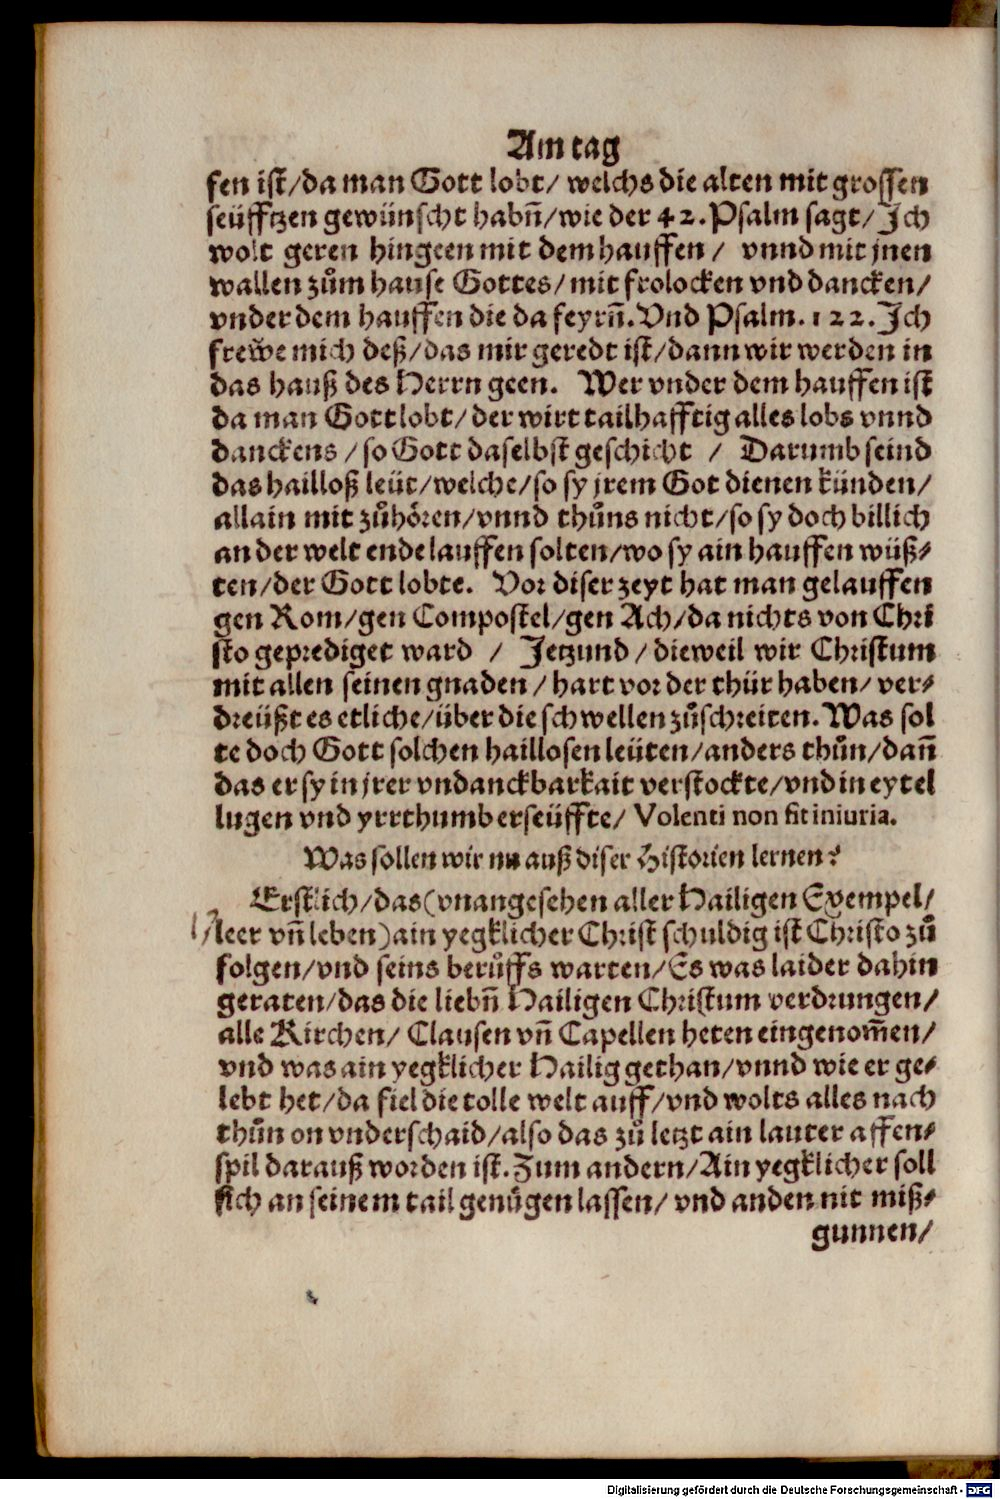 Am tag
fen ist/da man Gott lobt/ welchs die alten mit grossen
seüfftzen gewünscht habñ/wie der 42. Psalm sagt/ Ich
wolt geren hingeen mit dem hauffen / vnnd mit jnen
wallen zům hause Gottes/ mit frolocken vnd dancken/
vnder dem hauffen die da feyrñ. Vnd Psalm. 122. Ich
frewe mich deß/das mir geredt ist/dann wir werden in
das hauß des Herrn geen. Wer vnder dem hauffen ist
da man Gott lobt/ der wirt tailhafftig alles lobs vnnd
danckens /so Gott daselbst geschicht / Darumb seind
das hailloß leüt/welche/so sy jrem Got dienen künden/
allain mit zůhören/vnnd thůns nicht/so sy doch billich
an der welt ende lauffen solten/wo sy ain hauffen wüß-
ten/der Gott lobte. Vor diser zeyt hat man gelauffen
gen Rom/gen Compostel/gen Ach/da nichts von Chri
sto geprediget ward / Jetzund / dieweil wir Christum
mit allen seinen gnaden / hart vor der thür haben/ ver-
dreüßt es etliche/über die schwellen zůschreiten. Was sol
te doch Gott solchen haillosen leüten/anders thůn/dañ
das er sy in jrer vndanckbarkait verstockte/vnd in eytel
lugen vnd yrrthumb erseüffte/ Volenti non fit iniuria.
Was sollen wir nu auß diser Historien lernen?
Erstlich/das (vnangesehen aller Hailigen Exempel/
leer vñ leben) ain yegklicher Christ schuldig ist Christo zů
folgen/vnd seins berůffs warten/Es was laider dahin
geraten/das die liebñ Hailigen Christum verdrungen/
alle Kirchen/ Clausen vñ Capellen heten eingenom̃en/
vnd was ain yegklicher Hailig gethan/vnnd wie er ge-
lebt het/da fiel die tolle welt auff/vnd wolts alles nach
thůn on vnderschaid/also das zů letzt ain lauter affen-
spil darauß worden ist. Zum andern/Ain yegklicher soll
sich an seinem tail genügen lassen/ vnd anden nit miß-
gunnen/
Digitalisierung gefördert durch die Deutsche Forschungsgemeinschaft - DFG